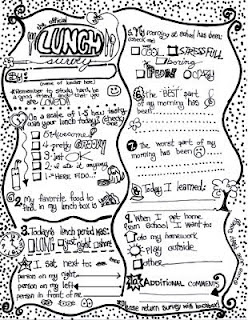 the official
LUNCH
survey
Hi!
(name of luncher here)
Remember to study hard, be
a good friend, and that you
are LOVED!!
1. On a scale of 1-5 how tasty
was your lunch today? (check
one)
5 = Awesome!
4 = pretty GROOVY
3 = just OK
2 = ate it anyway
1 = HERE FIDO...
2. My favorite food to
find in my lunch box is
3. Today's lunch period was:
LONG
right on time
4. I sat next to:
person on my right
person on my left
person in front of me
5. My morning at school has been
(check one)
COOL
STRESSFUL
boring
FUN
CRAZY
6. The BEST part
of my morning has
been
7. The worst part of my
morning has been
8. Today I learned:
9. When I get home
from school I want to:
do my homework
play outside
other
10. ADDITIONAL COMMENTS
please return survey with lunchbox!